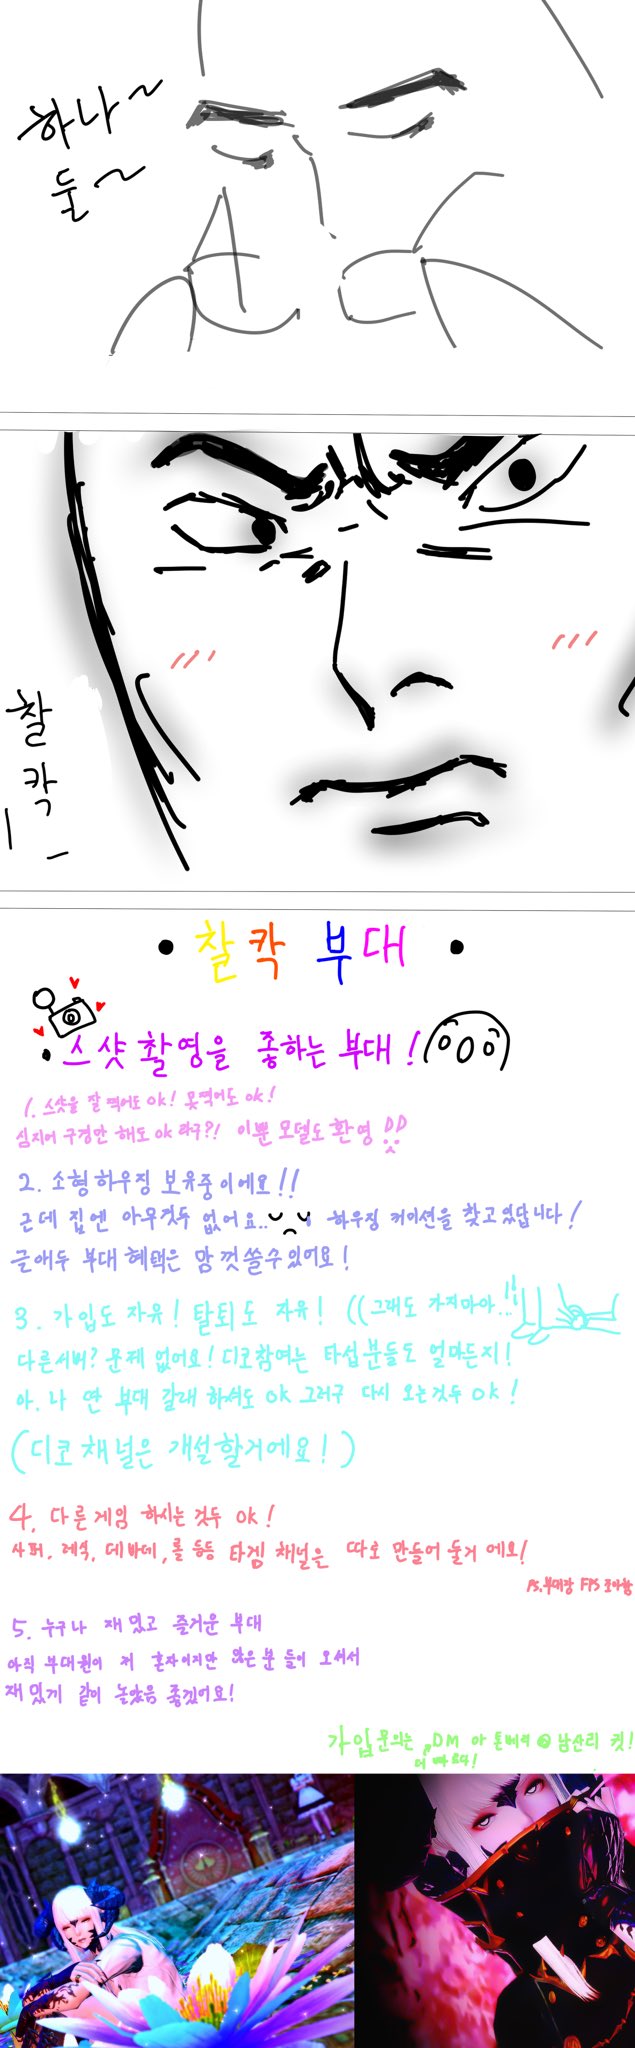 하나~
둘~
찰칵ㅣ_
• 찰칵 부대 •
• 스샷 촬영을 좋하는 부대!
1. 스샷을 잘 찍어도 ok! 못찍어도 ok!
심지어 구경만 해도 ok라구?! 이쁜 모델도 환영
2. 소형하우징 보유중이에요!!
근데 집엔 아무것두 없어요.. 하우징 커미션을 찾고있답니다!
글애두 부대 혜택은 맘껏쓸수있어요!
3. 가입도 자유! 탈퇴도 자유! ((그래도 가지마아..!!
다른서버? 문제 없어요! 디코참여는 타섭분들도 얼마든지!
아. 나 딴 부대 갈래 하셔도 ok 그러구 다시 오는것두 ok!
(디코채널은 개설할거에요!)
4. 다른게임 하시는 것두 ok!
사퍼, 레식, 데바데, 롤 등등 타겜 채널은 따로 만들어 둘거에요!
PS.부대장 FPS 조아함
5. 누구나 재밌고 즐거운 부대
아직 부대원이 저 혼자이지만 많은분들이 오셔서
재밌게 같이 놀았음 좋겠어요!
가입문의는 DM 아 톤베리@남산리 킷!